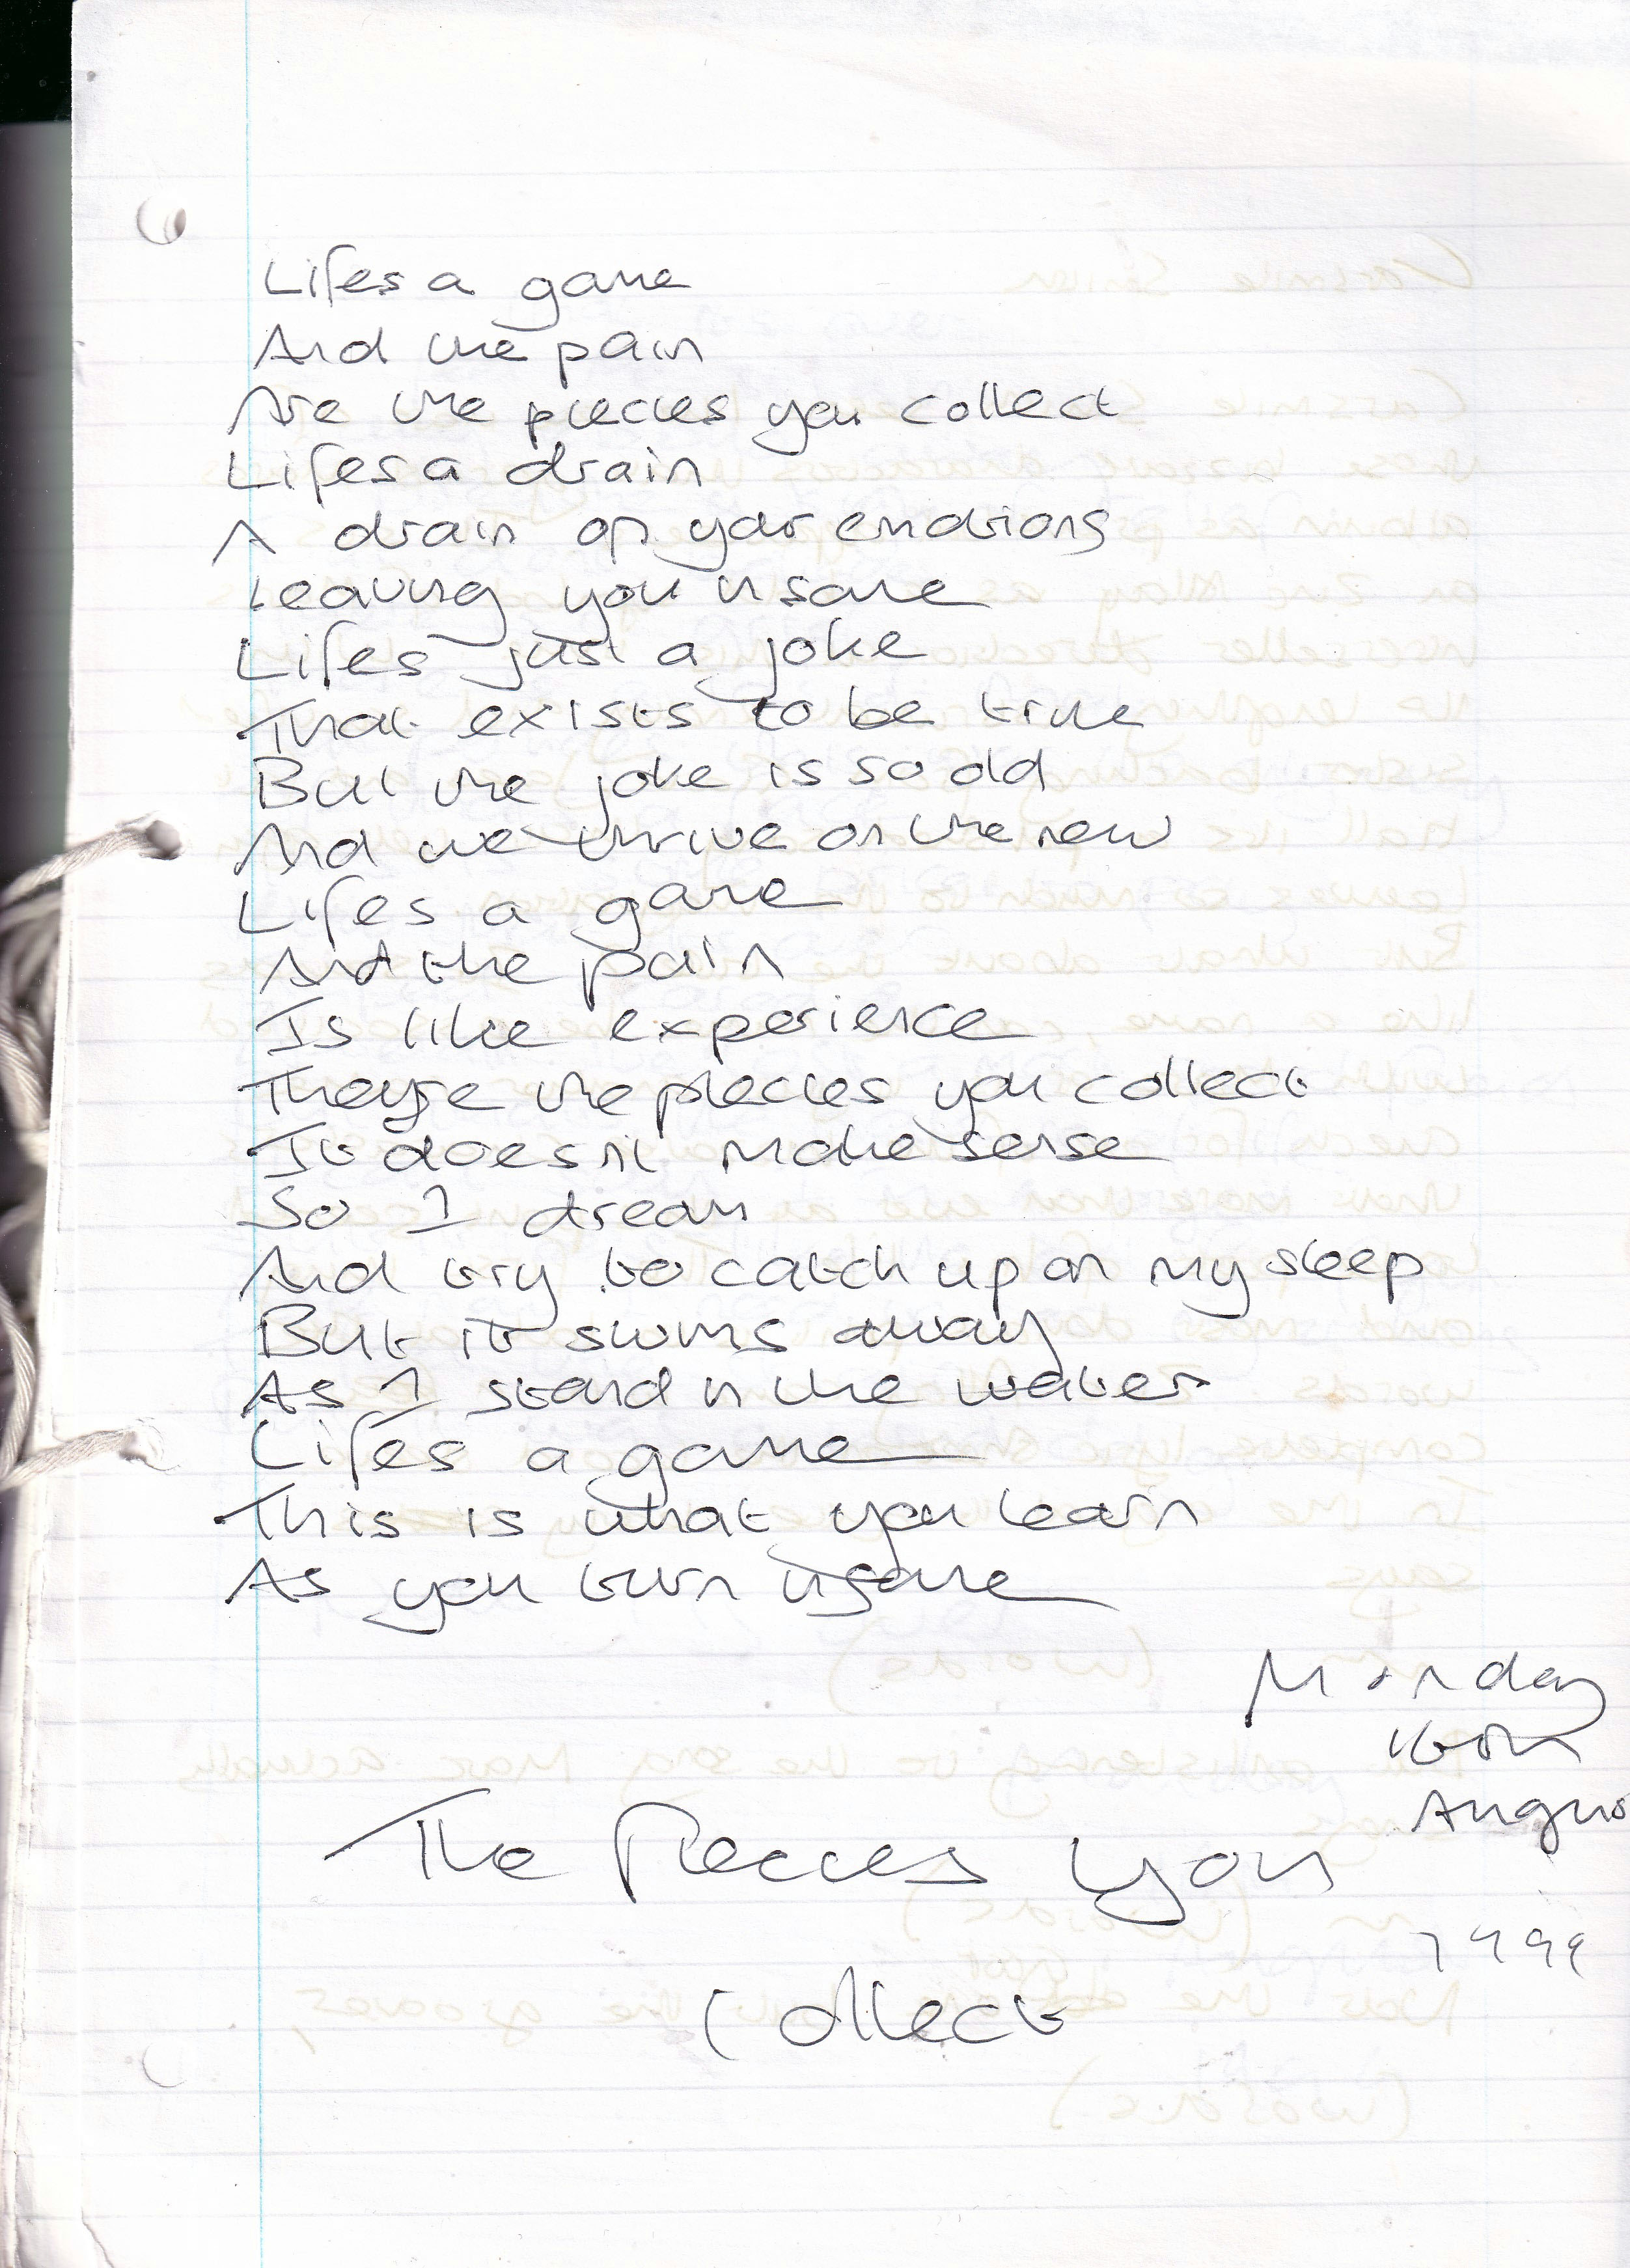 Lifes a game
And the pain
Are the piecies you collect
Lifes a drain
A drain on your emotions
Leaving you insane
Lifes just a joke
That exists to be true
But the joke is so old
And we thrive on the new
Lifes a game
And the pain
Is like experience
They're the piecies you collect
It doesnt make sense
So I dream
And try to catch up on my sleep
But it swims away
As I stand in the water
Lifes a game
This is what you learn
As you turn insane
Monday
16th
August
The Piecies You
1999
Collect